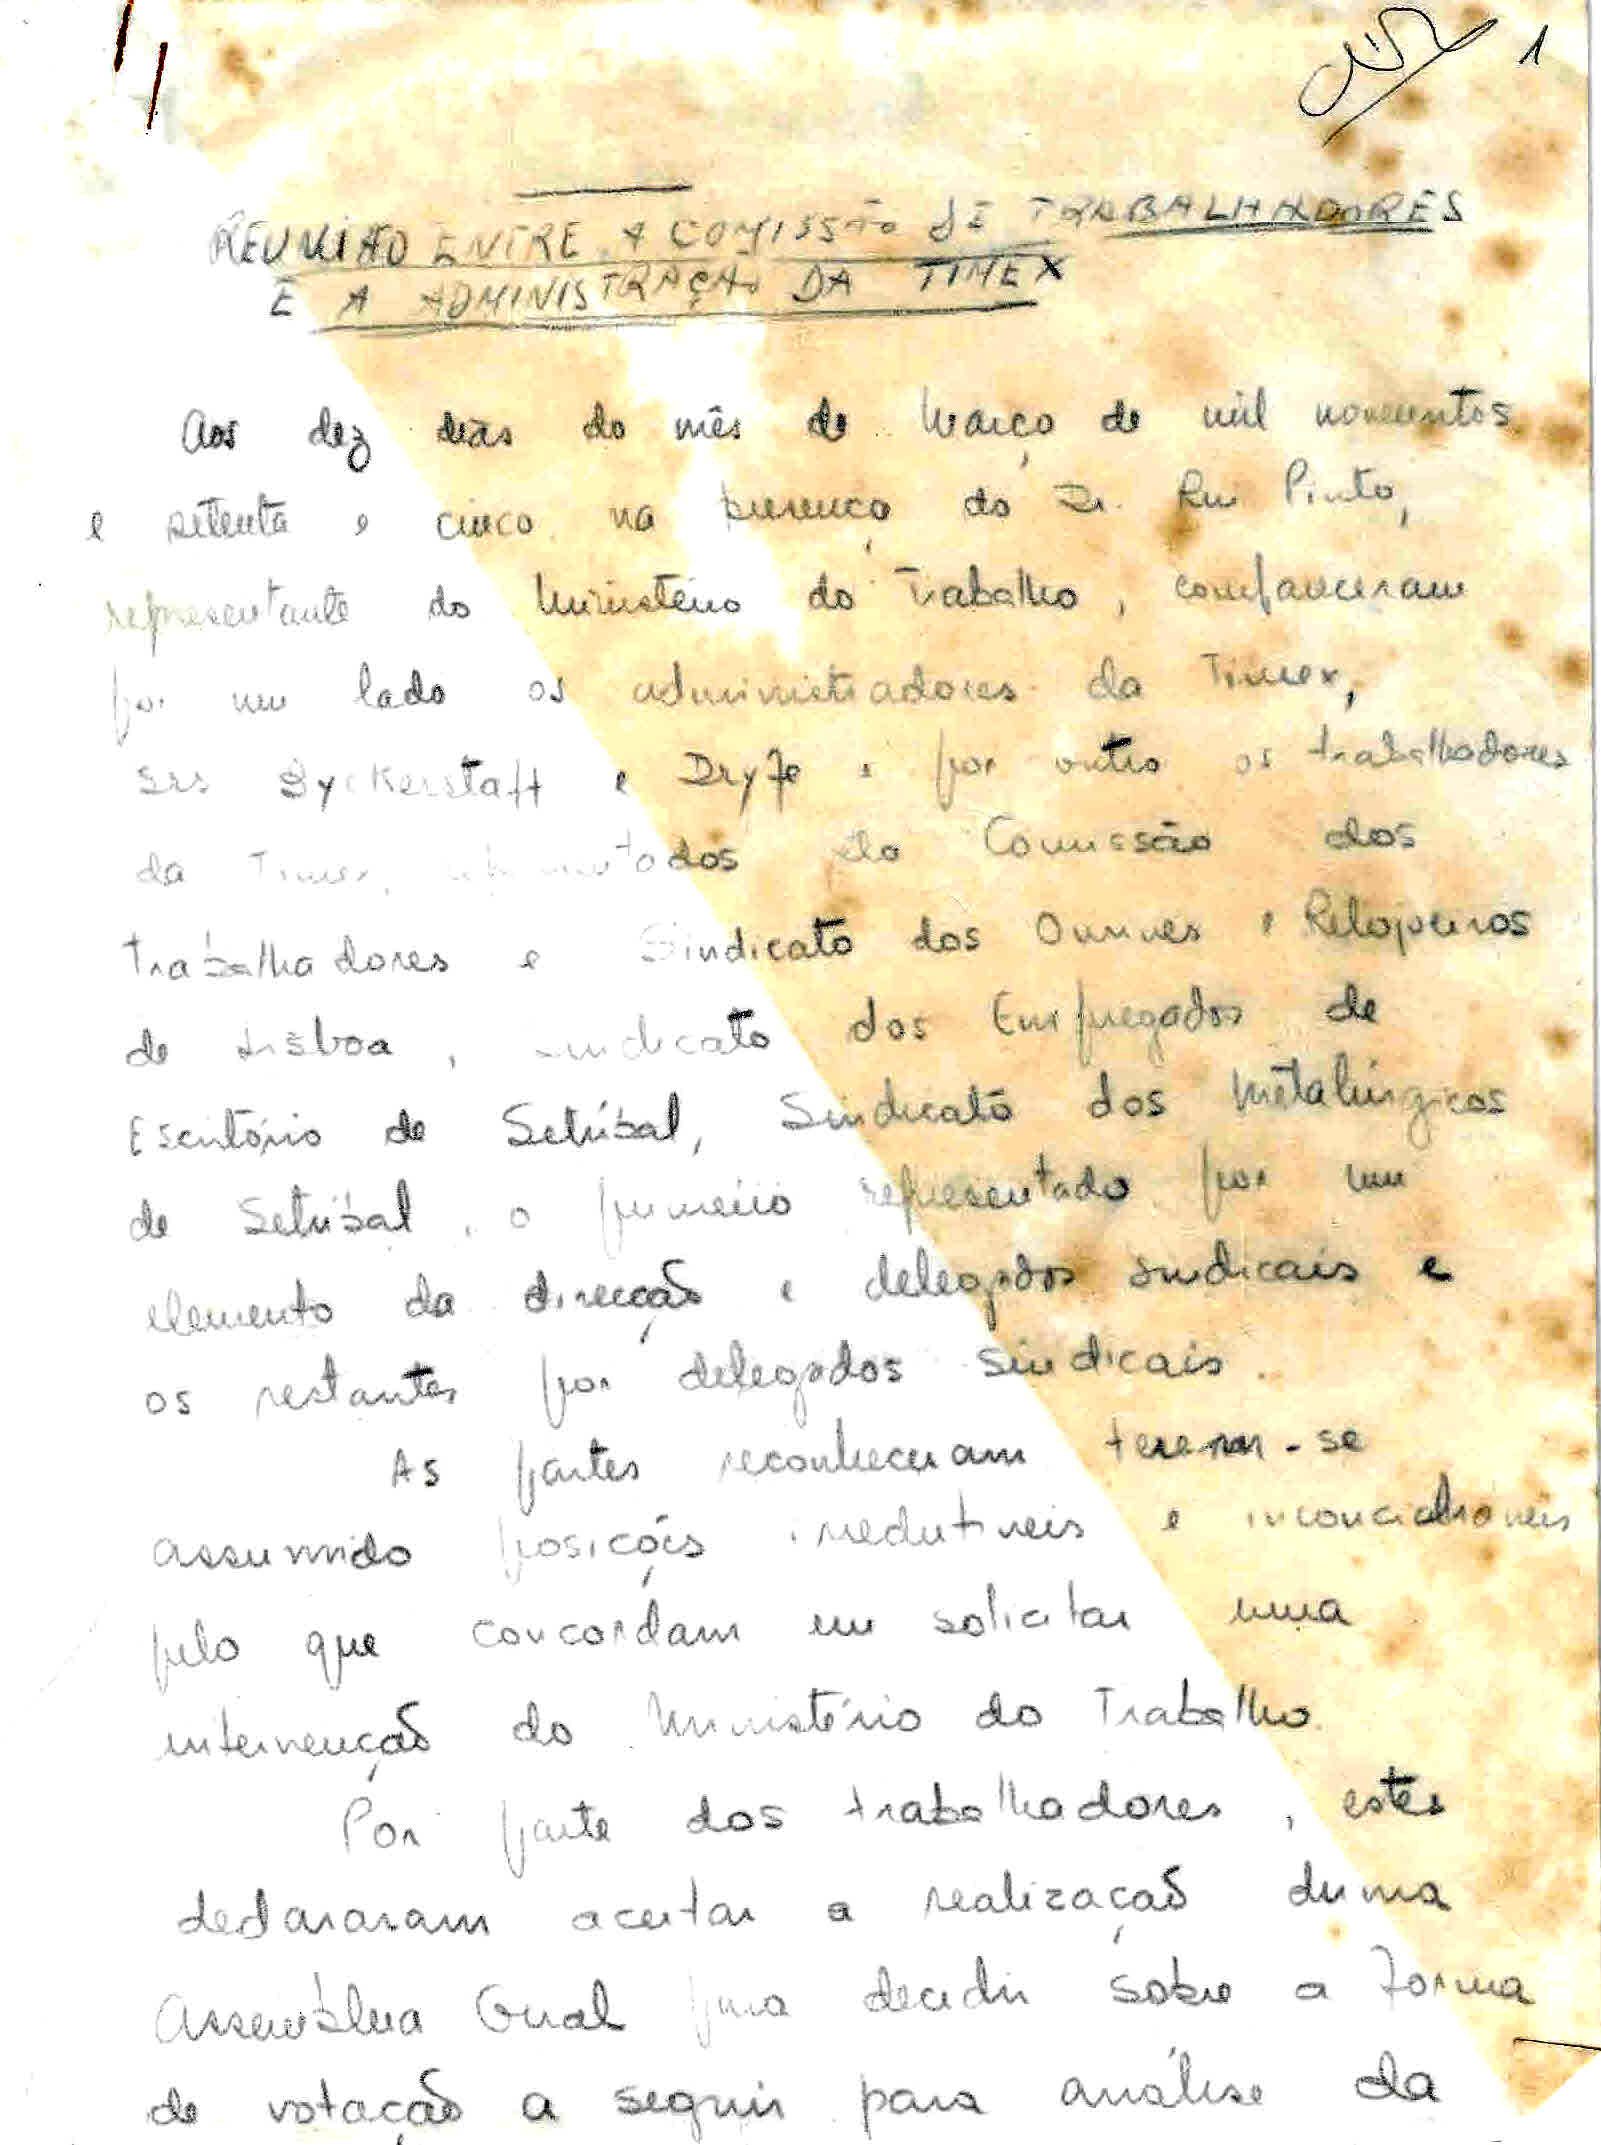 1
REUNIÃO ENTRE A COMISSÃO DE TRABALHADORES
E A ADMINISTRAÇÃO DA TIMEX
Aos dez dias do mês de Março de mil novecentos
e setenta e cinco na presença do Dr. Rui Pinto,
representante do Ministério do Trabalho, compareceram
por um lado os administradores da Timex,
Srs Byckerstaff e Dryfe e por outro os trabalhadores
da Timex, representados pela Comissão dos
trabalhadores e Sindicato dos Ourives e Relojoeiros
de Lisboa, Sindicato dos Empregados de
Escritório de Setúbal, Sindicato dos Metalúrgicos
de Setúbal, o primeiro representado por um
elemento da direcção e delegados sindicais e
os restantes por delegados sindicais.
As partes reconheceram terem-se
assumido posições irredutíveis e inconciliáveis
pelo que concordam em solicitar uma
intervenção do Ministério do Trabalho.
Por parte dos trabalhadores, estes
declararam aceitar a realização duma
Assembleia Geral para decidir sobre a forma
de votação a seguir para análise da